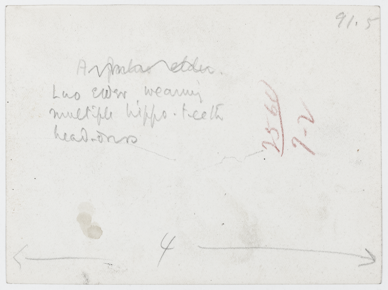 91.5
A
Luo elder wearing
multiple hippo-teeth
head-dress
2566
7-2
4